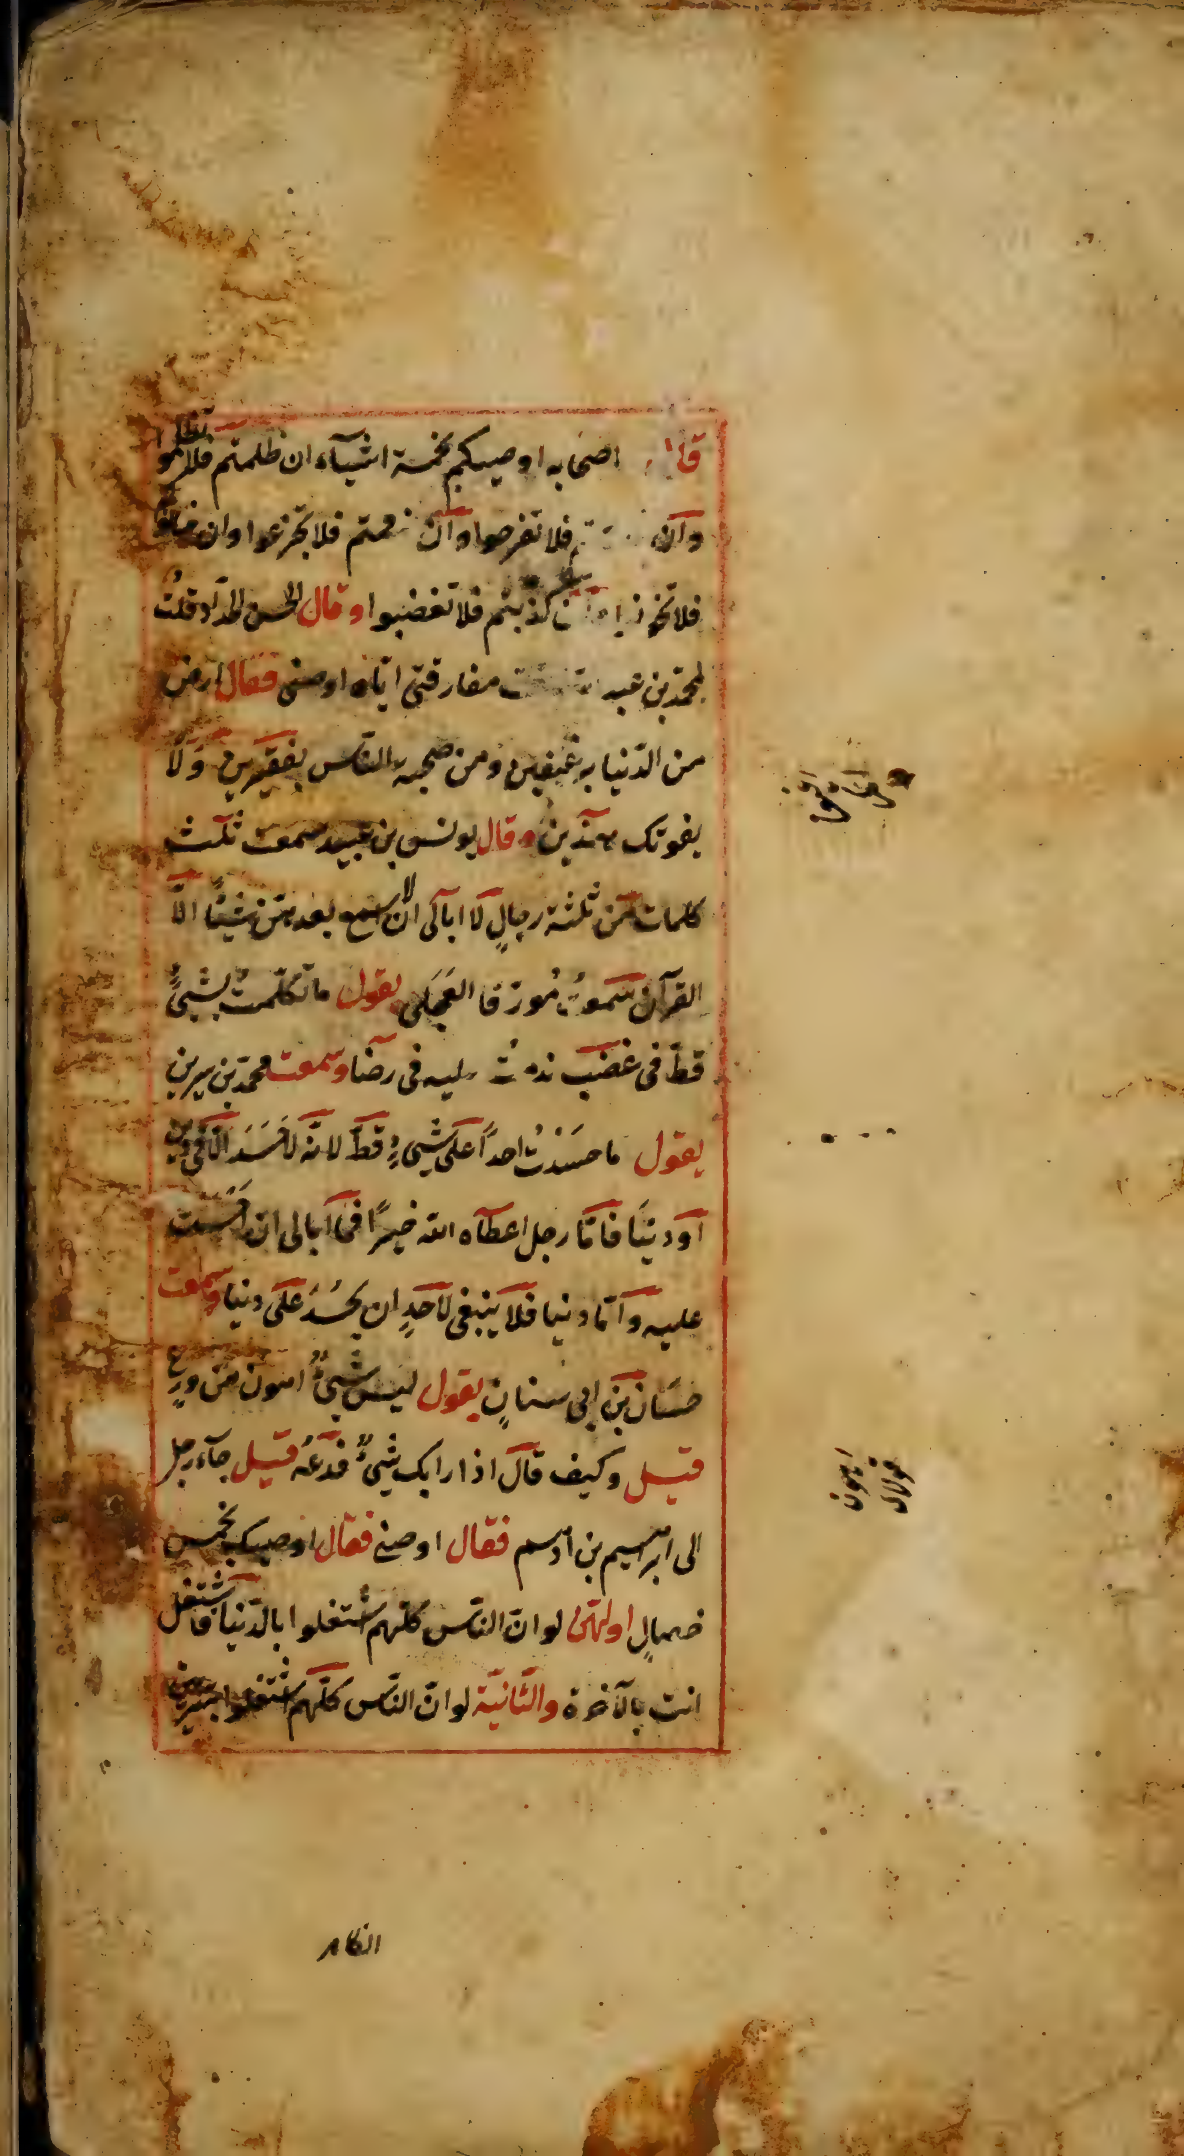 اصحابه اوصيكم بخمسة اشيآء ان ظلمتم فلا تظلموا
وان فلا تفرحوا وان ذممتم فلا تجزعوا وان
فلا كذبتم فلا تغضبوا وقال الحسن الحدّاد قلت
لمحمّد بن عبد مفارقتى ايّاه اوصنى فقال ارض
من الدّنيا برغيفين ومن صحبة النّاس بفقيرين ولا
يفوتك وقال يونس بن عبيد سمعت ثلث
كلمات من ثلثة رجالٍ لا ابالى ان لا اسمع بعدهنّ شيئًا الّا
القرآن سمعت مُورّقا العجلى يقول ما تكلّمتُ بشيءٍ
قطّ فى غضب ندمتُ عليه فى رضا وسمعت محمّد بن سيرين
يقول ما حسدتُ احدًا على شيءٍ قطّ لانّه لا حسد الّا فى دين
او دنيا فامّا رجل اعطآه الله خيرًا فما ابالى ان
عليه وامّا دنيا فلا ينبغى لاحدٍ ان يحسُدَ على دنيا وسمعت
حسّان بن ابى سنانٍ يقول ليس شيءٌ اهون من ورعٍ
قيل وكيف قال اذا رابك شيءٌ فدعهُ قيل جآء رجل
الى ابرهيم بن ادهم فقال اوصنى فقال اوصيك بخمس
خصالٍ اولهنّ لو انّ النّاس كلّهم اشتغلوا بالدّنيا فاشتغل
انت بالآخرة والثّانية لو انّ النّاس كلّهم اشتغلوا